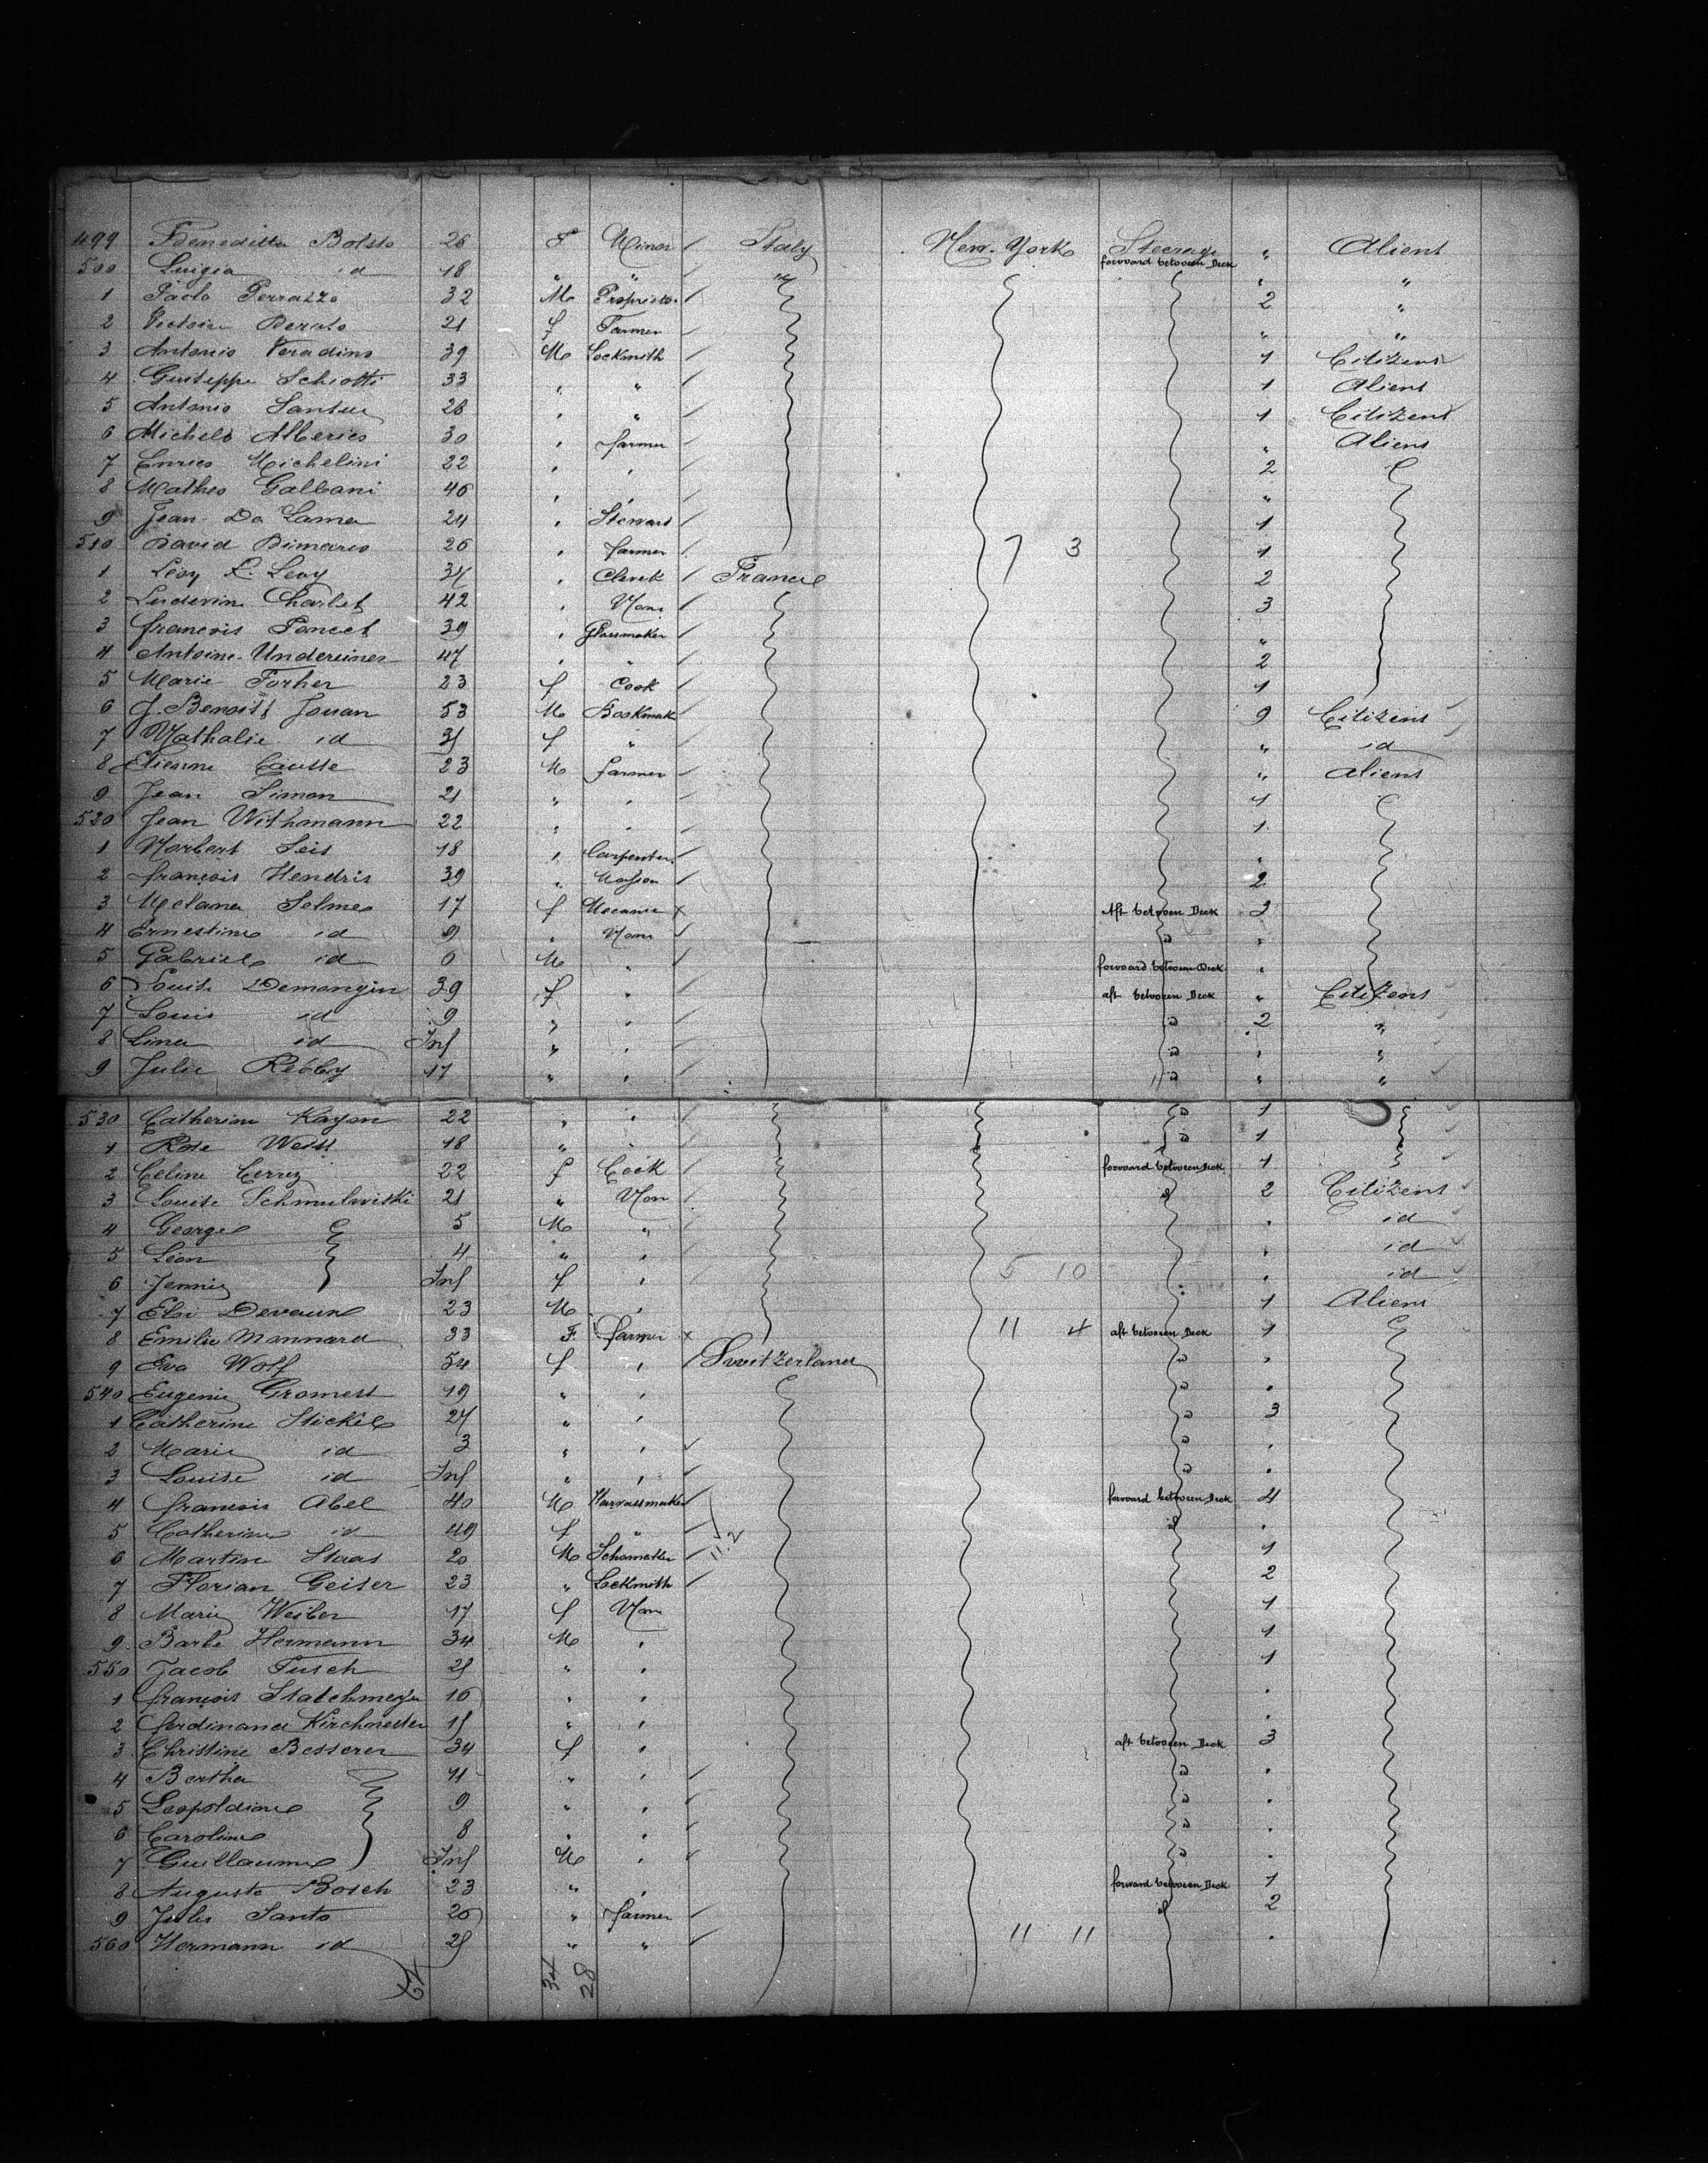 499 Benedetta Bolsto 26 F Miner / Italy New-York Steerage forward between Deck " Aliens
500 Luigia id 18 " " / " " "
1 Paolo Perrazzo 32 M Proprietor / 2 "
2 Victoire Berato 21 f Farmer / " "
3 Antonio Veradino 39 M Lockmith / 1 Citizens
4 Guiseppe Schiotti 33 " " / 1 Aliens
5 Antonio 28 " " / 1 Citizens
6 Michele Alberico 30 " farmer / " Aliens
7 Enrico Michelini 22 " " / 2
8 Matheo Galbani 46 " " / "
9 Jean Da Lama 24 " Stewart / 1
510 David Dimarco 26 " farmer / 7 3 1
1 Léon L. Levy 34 " Clerck / France 2
2 Charlet 42 " Non / 3
3 francois Poncet 39 " Glassmaker / "
4 Antoine Undereiner 47 " " / 2
5 Marie Forher 23 f Cook / 1
6 J. Benoist Jouan 53 M Bookmak 9 Citizens
7 Nathalie id f " / " id
8 Etienne Causse 23 M farmer / " Aliens
9 Jean Simon 21 " " / 1
520 Jean Withmann 22 " " / 1
1 Norbert Seis 18 " Carpenter / "
2 françois Hendris 39 " Masson / 2
3 Melana Selme 17 f Mecanic x Aft between Deck 2
4 Ernestine id 9 " Non / id "
5 Gabriel id 6 M " / forward between Deck "
6 Louise Demongin 39 f " / aft between Deck " Citizens
7 Louis id 9 " " / id 2 "
8 Lina id Inf " " / id " "
9 Julie Rébby 17 " " / id " "
530 Catherine Kayon 22 " " / id 1
1 Rose Weiss 18 " " / id 1
2 Celine Cerrez 22 f Cook / forward between Deck 1
3 Louise Schmulwiski 21 " Non / id 2 Citizens
4 George 5 M " / " id
5 Léon 4 " " / " id
6 Jennie Inf f " / 5 10 " id
7 Eloi Devaux 23 M " / 1 Aliens
8 Emilie Monnard 33 F farmer x 11 4 aft between Deck 1
9 Eva Wolf 54 f " / Switzerland id "
540 Eugenie Gromest 19 " " / id "
1 Catherine Stickel 24 " " / id 3
2 Marie id 3 " " / id "
3 Louise id Inf " " / id "
4 francois Abel 40 M Harnassmaker / forward between Deck 4
5 Catherine id 49 f " / 11.2 id "
6 Martin Stras 20 M Schomaker / 1
7 Florian Geiser 23 " Lockmith / 2
8 Marie Weiber 17 f Non 1
9 Barbe Hermann 34 M " 1
550 Jacob Fusch " " 1
1 françois 16 " " "
2 ferdinand Kirchmester " " "
3 Christine Besserer 34 f " aft between Deck 3
4 Bertha 11 " " / id "
5 Leopoldine 9 " " / id "
6 Caroline 8 " " / id "
7 Guillaume Inf M " / id "
8 Auguste Bosch 23 " " forward between Deck 1
9 Jules Santo 20 " farmer / id 2
560 Hermann id " " / 11 11 "
62 34 28